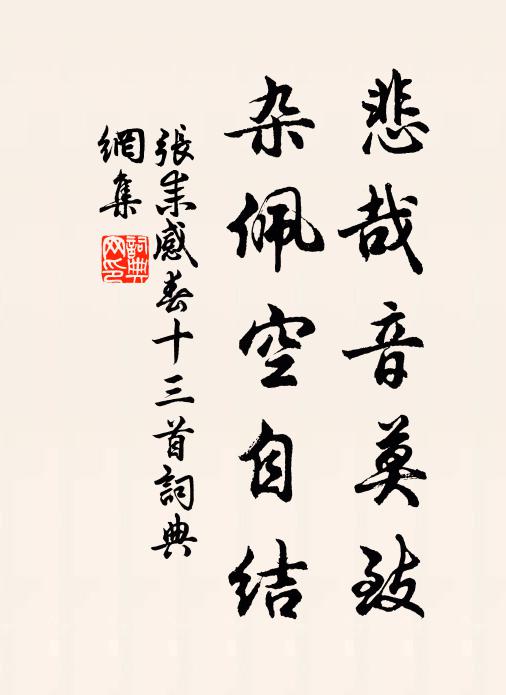 悲哉音莫致
杂佩空自结
張耒感春十三首詞典
網集
詞典
网印